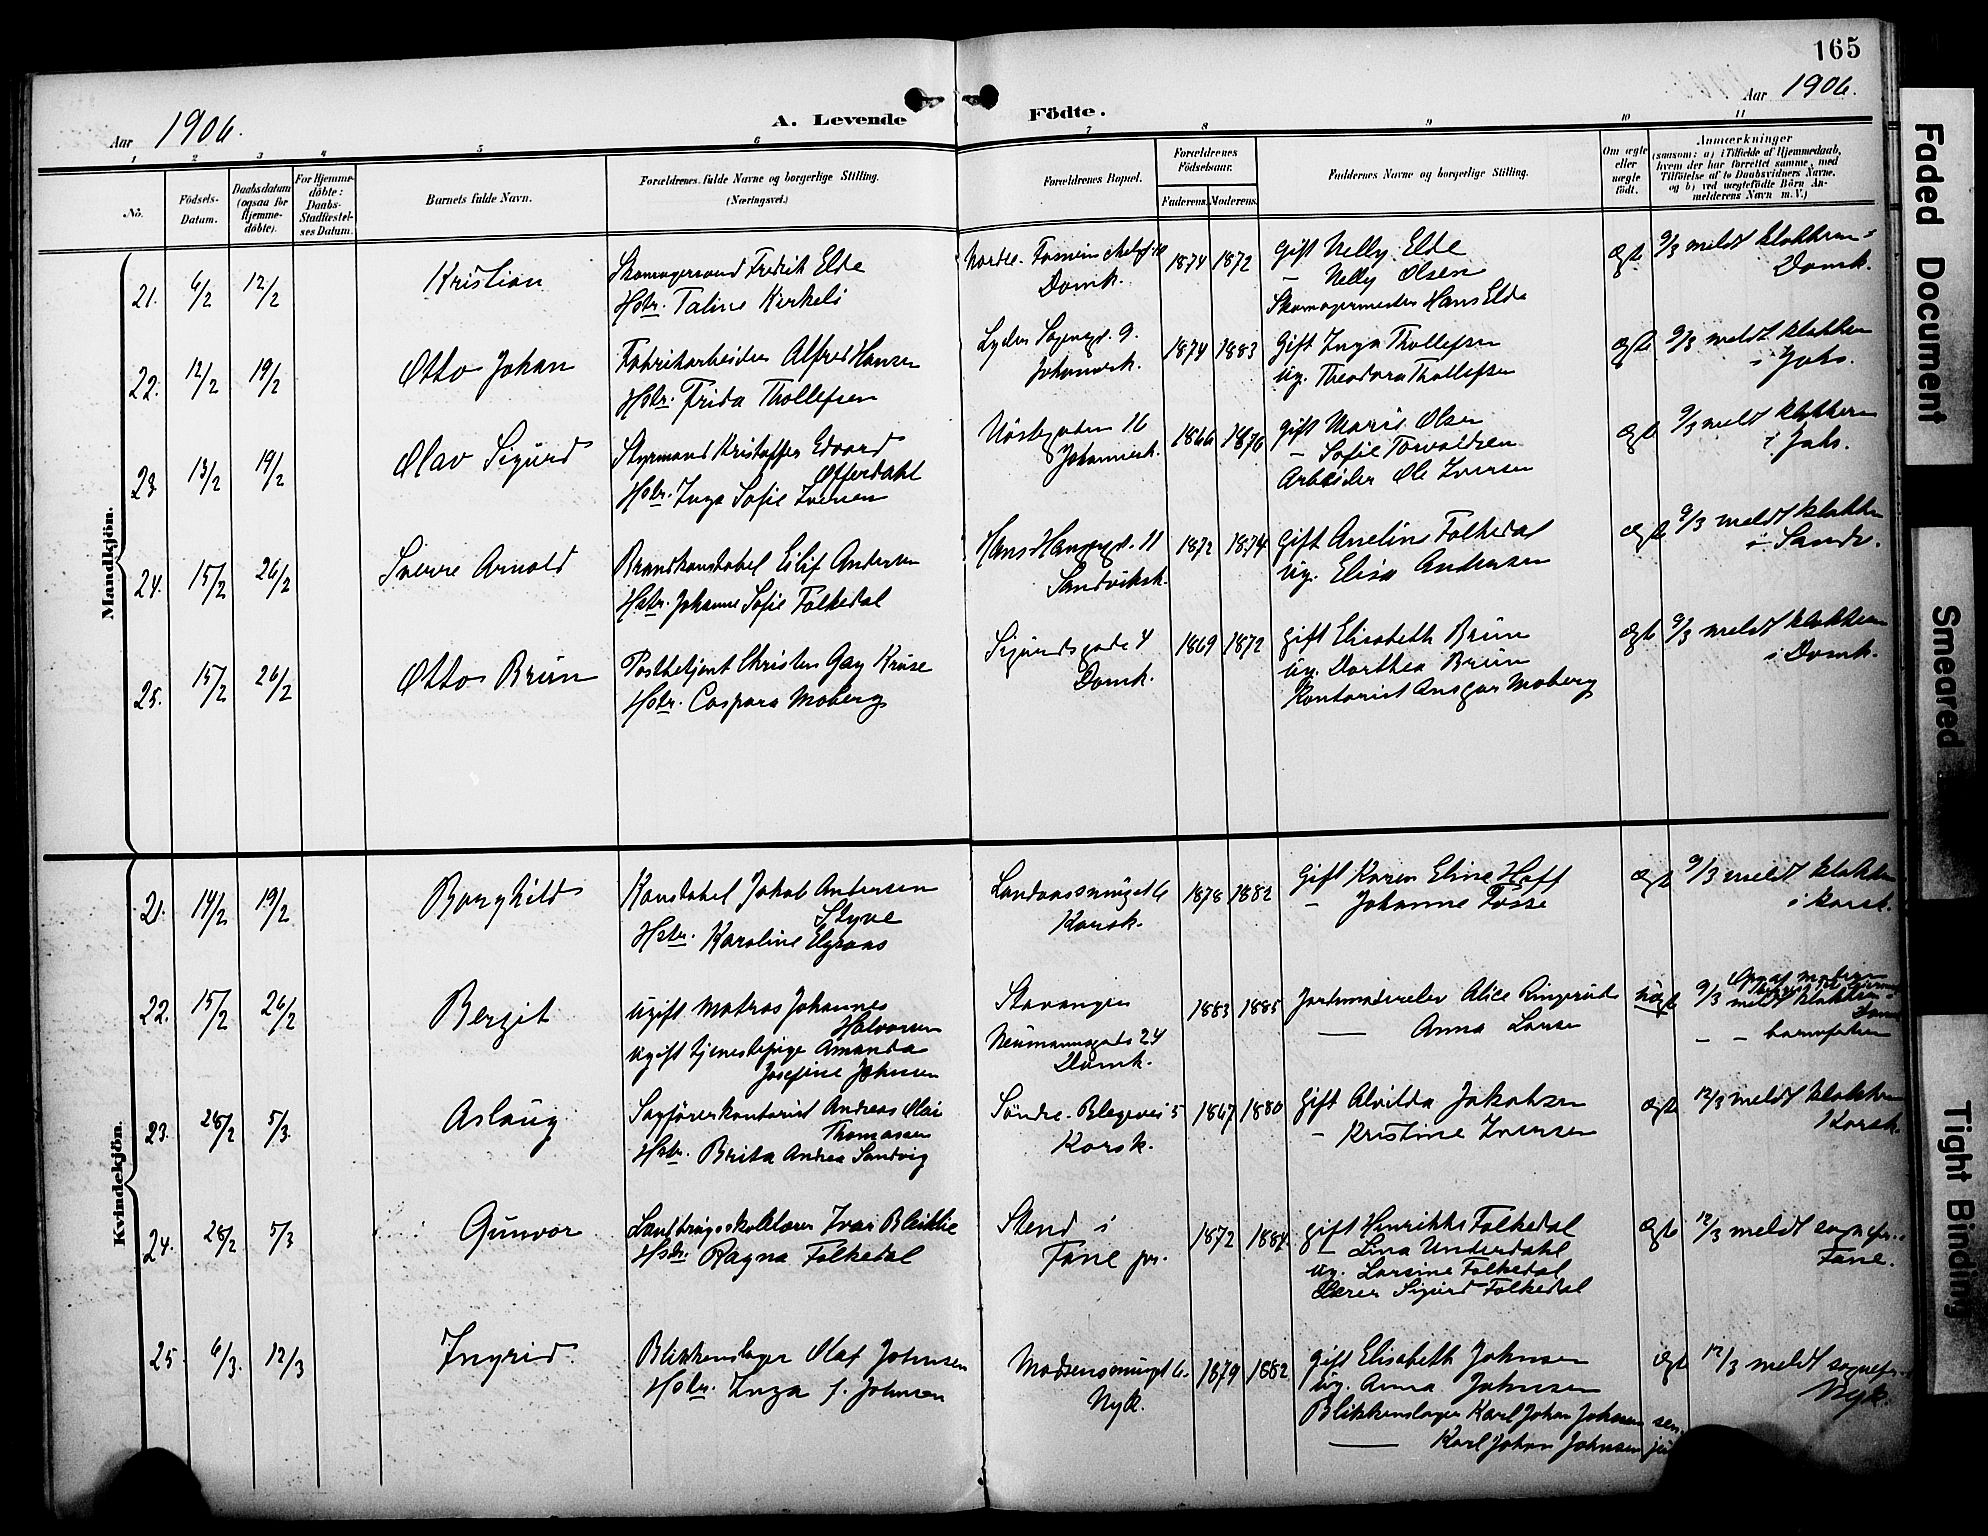 165
Aar 1906.
A. Levende Födte.
Aar 1906.
1 2 3 4 5 6 7 8 9 10 11
No.
Födsels-Datum.
Daabsdatum (ogsaa for Hjemme-döbte).
For Hjemme-döbte: Daabs-Stadfæstel-ses Datum.
Barnets fulde Navn.
Forældrenes fulde Navne og borgerlige Stilling.
(Næringsvei.)
Forældrenes Bopæl.
Forældrenes Födselsaar.
Faderens. Moderens.
Faddernes Navne og borgerlige Stilling.
Om ægte eller uægte födt.
Anmærkninger
(saasom: a) i Tilfælde af Hjemmedaab,
hvem der har forrettet samme, med
Tilföielse af to Daabsvidners Navne,
og b) ved uægtefödte Börn An-
melderens Navn m. V.)
Mandkjön.
21. 6/2 12/2 Kristian
Skomagersvend Fredrik Elde
Hstr. Taline Kirkeli
Domk.
1874 1872
Gift Nelly Elde
— Nelly Olsen
Skomagermester Hans Elde
Ægte 9/3 meldt klokkeren i
Domk.
22. 12/2 19/2 Otto Johan
Fabrikarbeider Alfred Hansen
Hstr. Frida Thollefsen
Lyder Sagensgd. 9.
Johannesk.
1874 1883
Gift Inga Thollefsen
Ug. Theodora Thollefsen
Ægte 9/3 meldt klokkeren
i Johs.
23. 13/2 19/2 Olav Sigurd
Styrmand Kristoffer Edvard
Offerdahl
Hstr. Inga Sofie Iversen
Nöstegaden 16
Johannesk.
1866 1876
Gift Marie Olsen
— Sofie Torvaldsen
Arbeider Ole Iversen
Ægte 9/3 meldt klokkeren
i Johs.
24. 15/2 26/2 Sverre Arnold
Brandkonstabel Eilif Andersen
Hstr. Johanne Sofie Folkedal
Hans Haugesgd. 11
Sandviksk.
1872 1874
Gift Anelin Folkedal
Ug. Elisa Andersen
Ægte 9/3 meldt klokkeren
i Sandv.
25. 15/2 26/2 Otto Brun
Postbetjent Christen Gay Kruse
Hstr. Caspara Moberg
Sigurdsgade 4
Domk.
1869 1872
Gift Elisabeth Brun
Ug. Dorthea Brun
Kontorist Ansgar Moberg
Ægte 9/3 meldt klokkeren
i Domk.
Kvindekjön.
21. 14/2 19/2 Borghild
Konstabel Jakob Andersen
Styve
Hstr. Karoline
Landaassmuget 6
Korsk.
1878 1882
Gift Karen Eline Hoff
— Johanne Fosse
Ægte 9/3 meldt klokkeren
i Korsk.
22. 15/2 26/2 Bergit
Ugift Matros Johannes
Halvorsen
Ugift tjenestepige Amanda
Josefine Johnsen
Stavanger
Neumannsgade 24
Domk.
1883 1885
Jordmoderelev Alice Ringerud
— Anna Larsen
Uægte
9/3 meldt klokkeren i
Domk.
— — barnefaren
23. 28/2 5/3 Aslaug
Sagförerkontorist Andreas Olai
Thomassen
Hstr. Brita Andrea Sandvig
Söndre Blegevei 5
Korsk.
1867 1880
Gift Alvilda Jakobsen
— Kristine Iversen
Ægte 12/3 meldt klokkeren
Korsk.
24. 28/2 5/3 Gunvor
Landbrugsskolelærer Ivar Bleiklie
Hstr. Ragna Folkedal
Stend i
Fane pr.
1872 1884
Gift Henrikke Folkedal
— Lina Underdahl
Ug. Larsine Folkedal
Sigurd Folkedal
Ægte 12/3 meldt sognepr. i
Fane.
25. 6/3. 12/3 Ingrid
Blikkenslager Olaf Johnsen
Hstr. Inga f. Johnsen
Madsensmuget 6.
Nyk.
1879 1882
Gift Elisabeth Johnsen
Ug. Anna Johnsen
Blikkenslager Karl Johan Johnsen sen.
— Karl Johan Johnsen jun
Ægte 12/3 meldt sognepr. i
Nyk.
Faded Document
Smeared
Tight Binding